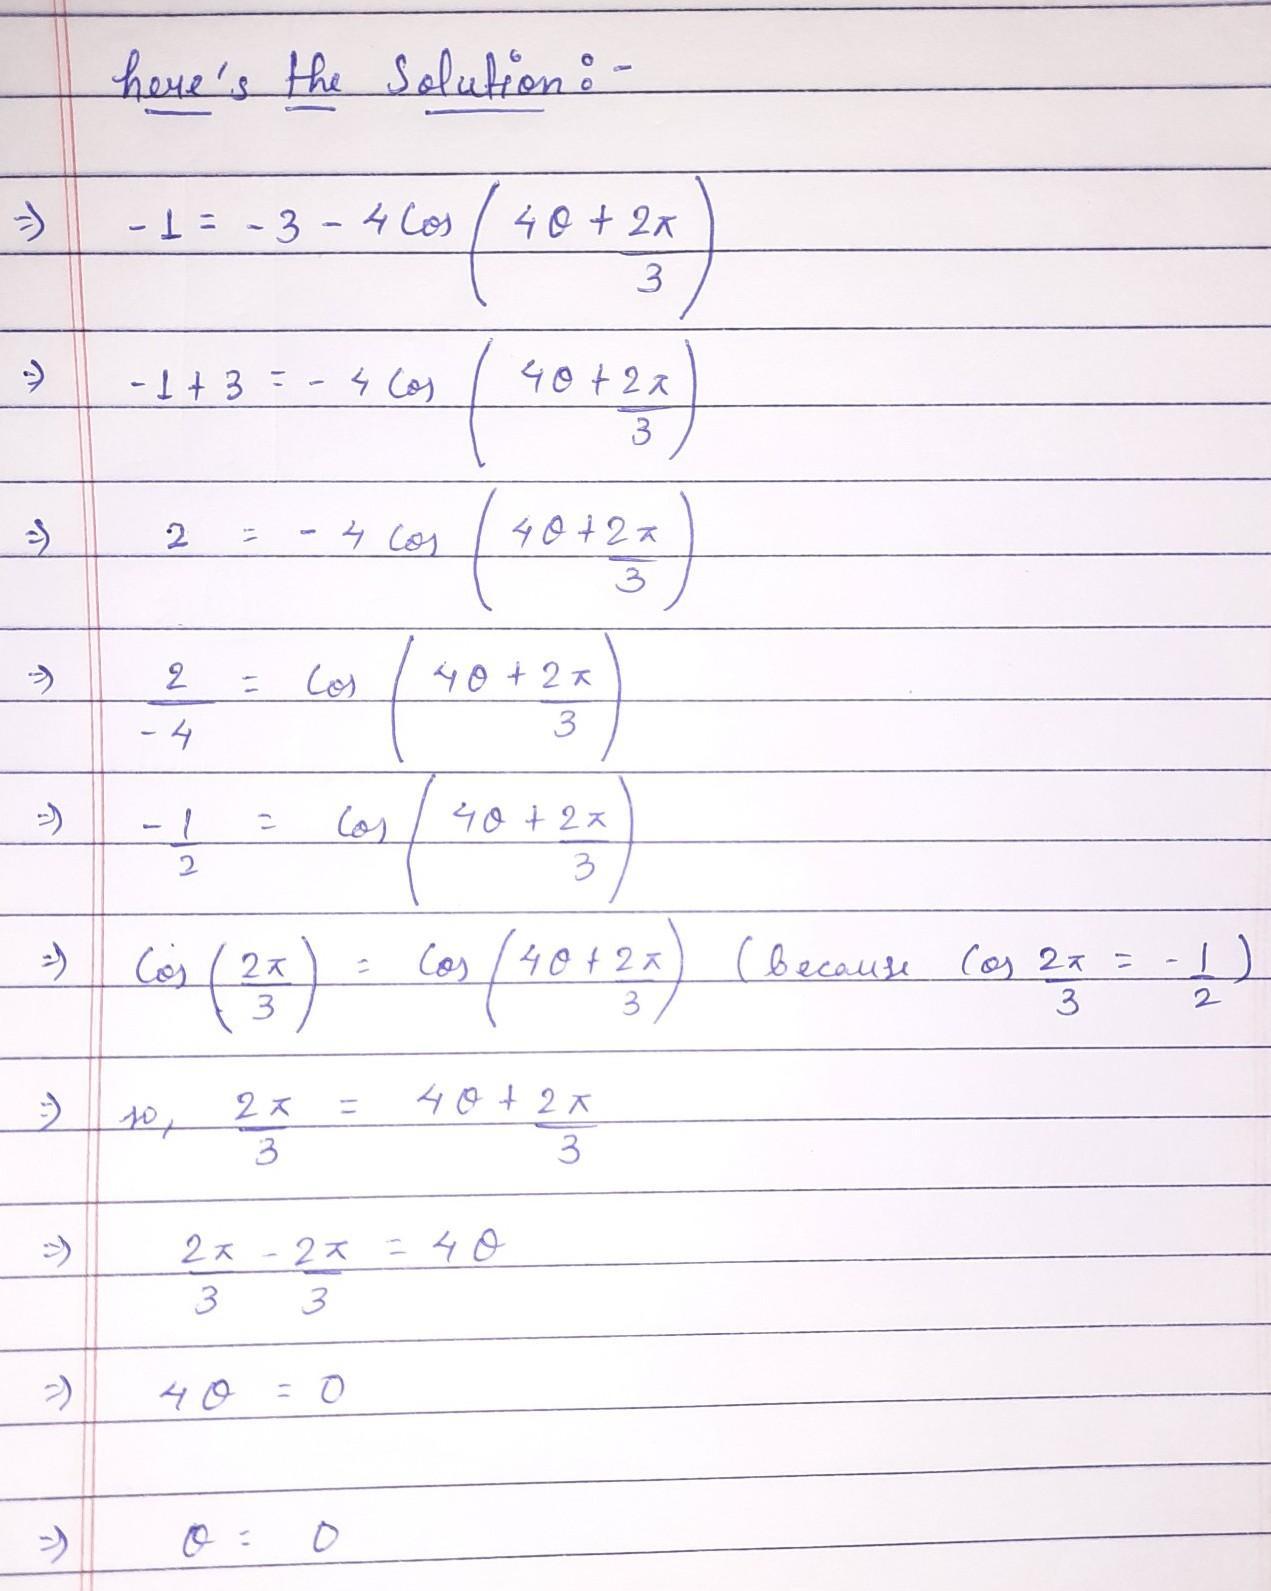 here's the Solution:-
⇒ -1 = -3 - 4 Cos (4θ + 2π/3)
⇒ -1 + 3 = - 4 Cos (4θ + 2π/3)
⇒ 2 = - 4 Cos (4θ + 2π/3)
⇒ 2/-4 = Cos (4θ + 2π/3)
⇒ -1/2 = Cos (4θ + 2π/3)
⇒ Cos (2π/3) = Cos (4θ + 2π/3) (because Cos 2π/3 = -1/2)
⇒ so, 2π/3 = 4θ + 2π/3
⇒ 2π/3 - 2π/3 = 4θ
⇒ 4θ = 0
⇒ θ = 0